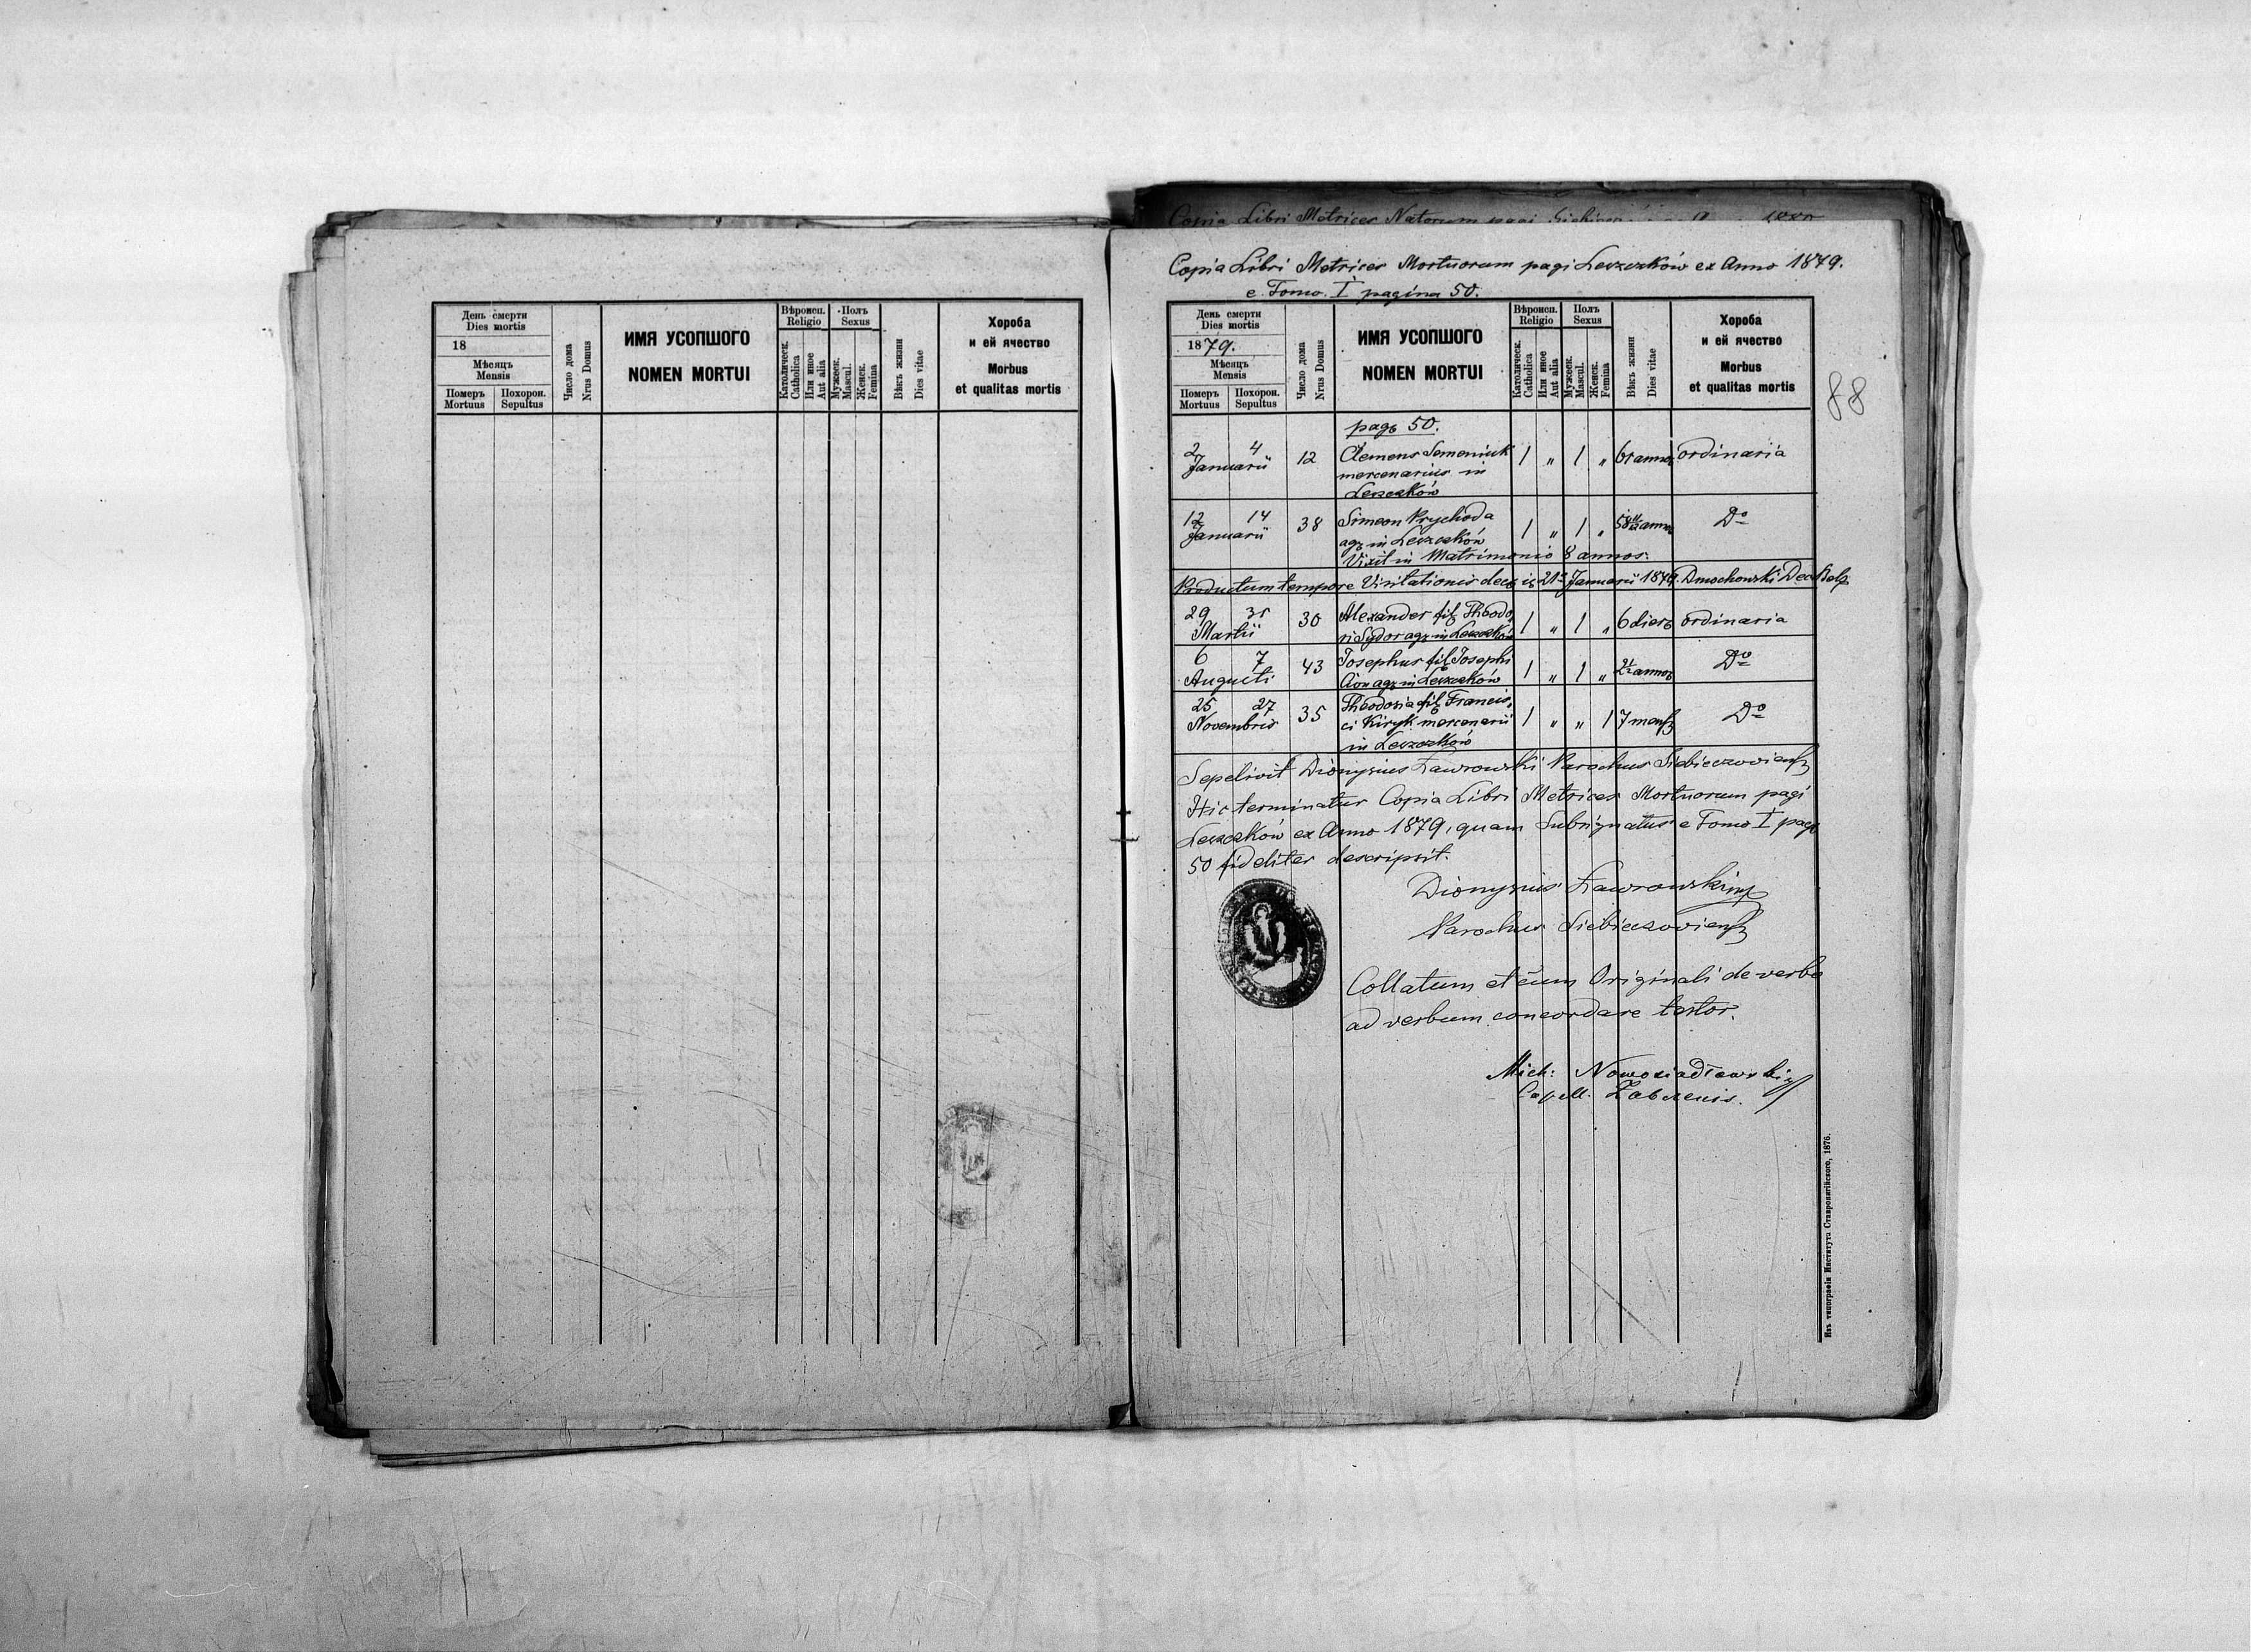 День смерти
Dies mortis
18
Мѣсяцъ
Mensis
Померъ
Mortuus
Похорон.
Sepultus
Число дома
Nrus Domus
ИМЯ УСОПШОГО
NOMEN MORTUI
Вѣроисп.
Religio
Католическ.
Catholica
Или иное
Aut alia
Полъ
Sexus
Мужеск.
Mascul.
Женск.
Femina
Вѣкъ жизни
Dies vitae
Хороба
и ей ячество
Morbus
et qualitas mortis
Copia Libri Metrices Natorum pagi
Copia Libri Metrices Mortuorum pagi Leszczków ex Anno 1879.
e Tomo I pagina 50.
День смерти
Dies mortis
1879.
Мѣсяцъ
Mensis
Померъ
Mortuus
Похорон.
Sepultus
Число дома
Nrus Domus
ИМЯ УСОПШОГО
NOMEN MORTUI
Вѣроисп.
Religio
Католическ.
Catholica
Или иное
Aut alia
Полъ
Sexus
Мужеск.
Mascul.
Женск.
Femina
Вѣкъ жизни
Dies vitae
Хороба
и ей ячество
Morbus
et qualitas mortis
88
pag 50.
2 4 Januarii 12 Clemens Semeniuk 1 " 1 " 61 annos ordinaria
mercenarius in
Leszczków
12 14 Januarii 38 Simeon Prychoda 1 " 1 " annos Do
agr in Leszczków
Vixit in Matrimonio 8 annos.
Productum tempore Visitationis 21 Januarii 1879. Dmochowski Dec Belz
29 31 Martii 30 Alexander fil Theodo 1 " 1 " 6 dies ordinaria
ri Sydor agr in Leszczków
6 7 Augusti 43 Josephus fil Josephi 1 " 1 " annos Do
agr in Leszczków
25 27 Novembris 35 Theodosia fil Francis 1 " " 1 7 mens Do
ci Kiryk mercenarii
in Leszczków
Sepelivit Dionysius Ławrowski Parochus Siebieczoviens
Hic terminatur Copia Libri Metrices Mortuorum pagi
Leszczków ex Anno 1879, quam Subsignatus e Tomo I pag
50 fideliter descripsit.
Dionysius Ławrowski
Parochus Siebieczoviens
Collatum et cum Originali de verbo
ad verbum concordare testor.
Mich: Nowosiadłowski
Capell. Zabcensis.
Изъ типографіи Института Ставропигійского, 1876.